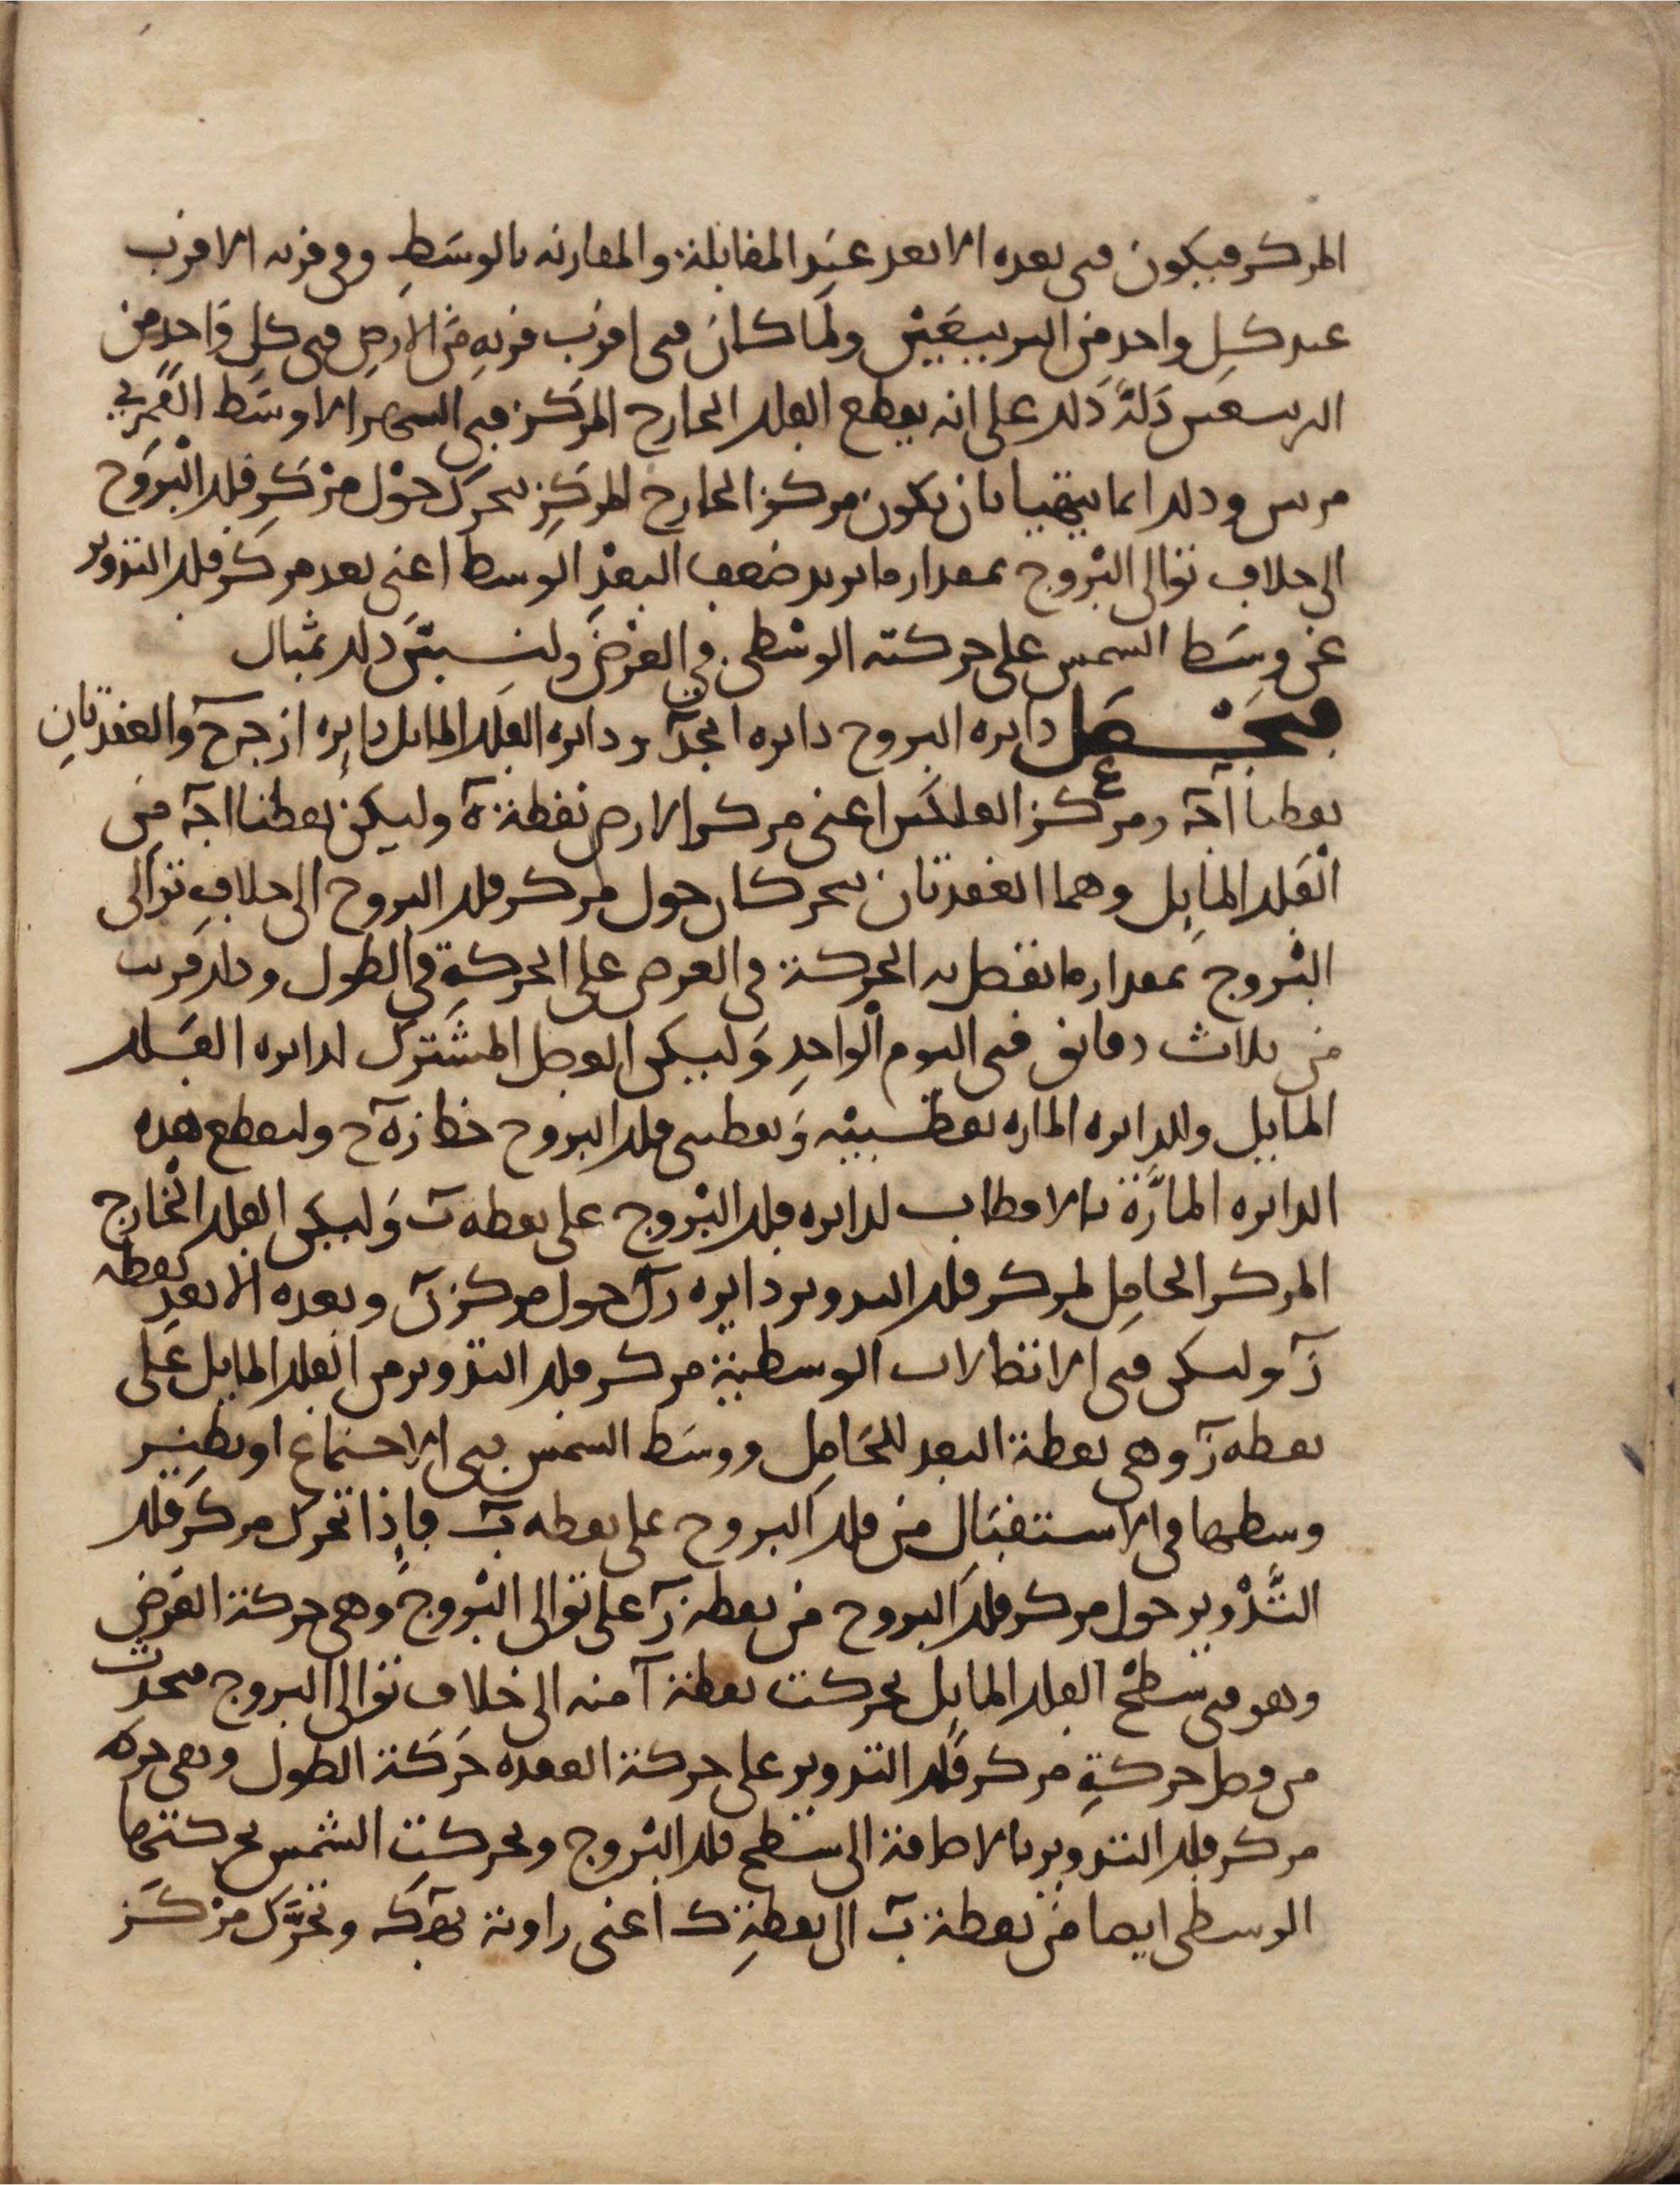 المركز فيكون فى بعده الابعد عند المقابلة والمقارنه بالوسط وفى قربه الاقرب
عند كل واحد من التربيعين ولما كان فى اقرب قربه من الارض فى كل واحد من
التربيعين دل ذلك على انه يقطع الفلك الخارج المركز فى الشهر الاوسط القمرى
مرتين وذلك انما يتهيا بان يكون مركز الخارج المركز يتحرك حول مركز فلك البروج
الى خلاف توالى البروج بمقدار ما يزيد ضعف البعد الوسط اعنى بعد مركز فلك التدوير
عن وسط الشمس على حركته الوسطى فى العرض ولنبين ذلك بمثال
فنجعل دايره البروج دايره ابجد ودايره الفلك المايل دايره ازجح والعقدتان
نقطتا اج ومركز الفلكين اعنى مركز الارض نقطة ه وليكن نقطتا اج من
الفلك المايل وهما العقدتان يتحركان حول مركز فلك البروج الى خلاف توالى
البروج بمقدار ما تفضل به الحركة فى العرض على الحركة فى الطول وذلك قريب
من ثلاث دقايق فى اليوم الواحد وليكن الفصل المشترك لدايره الفلك
المايل والدايره الماره بقطبيه وقطبى فلك البروج خط زهح ولتقطع هذه
الدايره المارة بالاقطاب لدايره فلك البروج على نقطه ب وليكن الفلك الخارج
المركز الحامل لمركز فلك التدوير دايره زل حول مركز ن وبعده الابعد نقطه
ز وليكن فى الاتصالات الوسطية مركز فلك التدوير من الفلك المايل على
نقطه ز وهى نقطة البعد للحامل ووسط الشمس فى الاجتماع او نظير
وسطها فى الاستقبال من فلك البروج على نقطه ب فاذا تحرك مركز فلك
التدوير حول مركز فلك البروج من نقطة ز على توالى البروج وهى حركة العرض
وهو فى سطح الفلك المايل تحركت نقطة ا منه الى خلاف توالى البروج فتحدث
من فضل حركة مركز فلك التدوير على حركة العقده حركة الطول وهى حركه
مركز فلك التدوير بالاضافة الى سطح فلك البروج وتحركت الشمس بحركتها
الوسطى ايضا من نقطة ب الى نقطة ك اعنى زاوية بهك وتحرك مركز